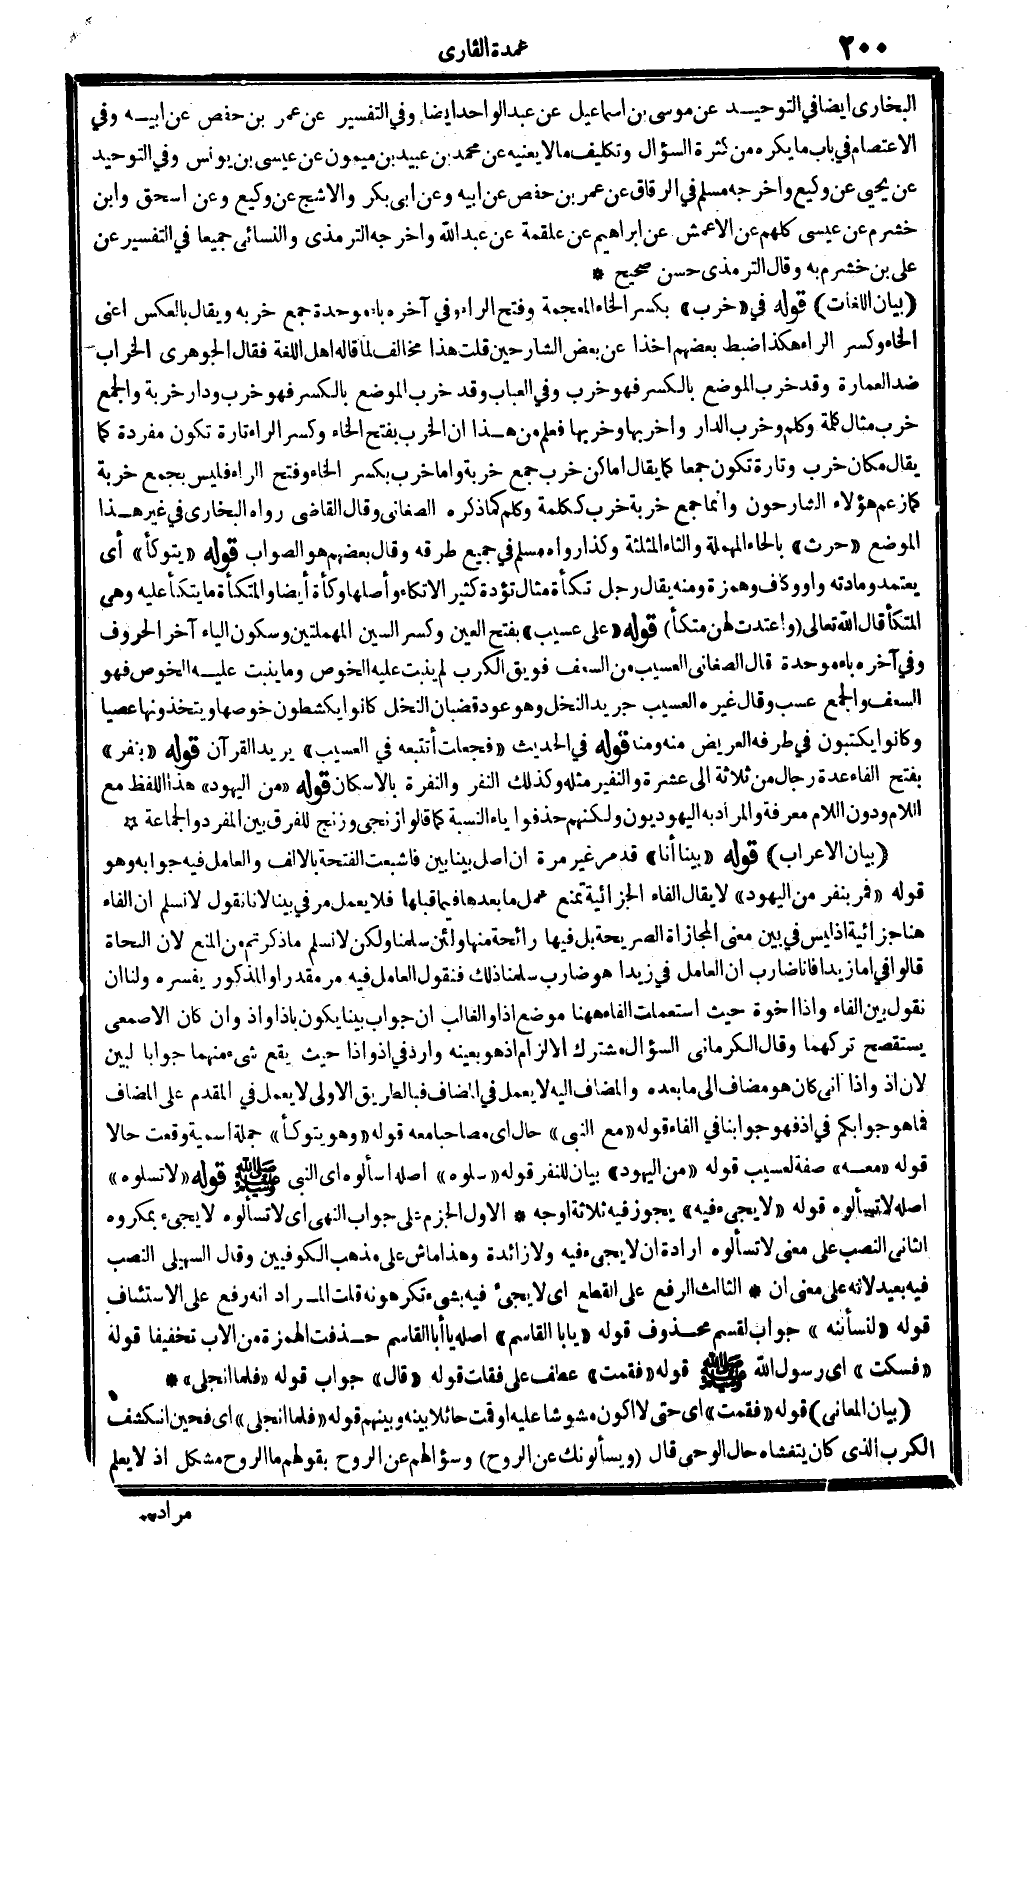 ٢٠٠
عمدة القارى
البخارى ايضا فى التوحيد عن موسى بن اسماعيل عن عبد الواحد ايضا وفى التفسير عن عمر بن حفص عن ابيه وفى
الاعتصام فى باب ما يكره من كثرة السؤال وتكليف مالايعنيه عن محمد بن عبيد بن ميمون عن عيسى بن يونس وفى التوحيد
عن يحيى عن وكيع واخرجه مسلم فى الرقاق عن عمر بن حفص عن ابيه وعن ابى بكر والاشج عن وكيع وعن اسحق وابن
خشرم عن عيسى كلهم عن الاعمش عن ابراهيم عن علقمة عن عبد الله واخرجه الترمذى والنسائى جميعا فى التفسير عن
على بن خشرم به وقال الترمذى حسن صحيح *
(بيان اللغات) قوله فى «خرب» بكسر الخاء المعجمة وفتح الراء وفى آخره باء موحدة جمع خربه ويقال بالعكس اعنى
الخاء وكسر الراء هكذا ضبط بعضهم اخذا عن بعض الشارحين قلت هذا مخالف لما قاله اهل اللغة فقال الجوهرى الخراب
ضد العمارة وقد خرب الموضع بالكسر فهو خرب وفى العباب وقد خرب الموضع بالكسر فهو خرب ودار خربة والجمع
خرب مثال كلمة وكلم وخرب الدار واخربها وخربها فعلم من هذا ان الخرب بفتح الخاء وكسر الراء تارة تكون مفردة كما
يقال مكان خرب وتارة تكون جمعا كما يقال اماكن خرب جمع خربة واما خرب بكسر الخاء وفتح الراء فليس بجمع خربة
كما زعم هؤلاء الشارحون وانما جمع خربة خرب ككلمة وكلم كما ذكره الصغانى وقال القاضى رواه البخارى فى غير هذا
الموضع «حرث» بالحاء المهملة والثاء المثلثة وكذا رواه مسلم فى جميع طرقه وقال بعضهم هو الصواب قوله «يتوكأ» أى
يعتمد ومادته واو وكاف وهمزة ومنه يقال رجل تكأة مثال تؤدة كثير الاتكاء وأصلها وكأة أيضا والمتكأة ما يتكأ عليه وهى
المتكأ قال الله تعالى (واعتدت لهن متكأ) قوله «على عسيب» بفتح العين وكسر السين المهملتين وسكون الياء آخر الحروف
وفى آخره باء موحدة قال الصغانى العسيب من السعف فويق الكرب لم ينبت عليه الخوص وما ينبت عليه الخوص فهو
السعف والجمع عسب وقال غيره العسيب جريد النخل وهو عود قضبان النخل كانوا يكشطون خوصها ويتخذونها عصيا
وكانوا يكتبون فى طرفه العريض منه ومنا قوله فى الحديث «فجعلت أتتبعه فى العسيب» يريد القرآن قوله «بنفر»
بفتح الفاء عدة رجال من ثلاثة الى عشرة والنفير مثله وكذلك النفر والنفرة بالاسكان قوله «من اليهود» هذا اللفظ مع
اللام ودون اللام معرفة والمراد به اليهوديون ولكنهم حذفوا ياء النسبة كما قالوا زنجى وزنج للفرق بين المفرد والجماعة ☆
(بيان الاعراب) قوله «بينا أنا» قد مر غير مرة ان اصل بينا بين فاشبعت الفتحة بالالف والعامل فيه جوابه وهو
قوله «فمر بنفر من اليهود» لايقال الفاء الجزائية تمنع عمل ما بعدها فيما قبلها فلا يعمل مر فى بينا لانا نقول لانسلم ان الفاء
هنا جزائية اذ ليس فى بين معنى المجازاة الصريحة بل فيها رائحة منها ولئن سلمنا ولكن لانسلم ماذكرتم من المنع لان النحاة
قالوا فى اما زيدا فانا ضارب ان العامل فى زيدا هو ضارب سلمنا ذلك فنقول العامل فيه مر مقدر او المذكور يفسره ولنا ان
نقول بين الفاء واذا اخوة حيث استعملت الفاء ههنا موضع اذا والغالب ان جواب بينا يكون باذا واذ وان كان الاصمعى
يستفصح تركهما وقال الكرمانى السؤال مشترك الالزام اذ هو بعينه وارد فى اذ واذا حيث يقع شىء منهما جوابا لبين
لان اذ واذا انى كان هو مضاف الى ما بعده والمضاف اليه لا يعمل فى المضاف فبالطريق الاولى لا يعمل فى المقدم على المضاف
فما هو جوابكم فى اذ فهو جوابنا فى الفاء قوله «مع النبى» حال اى مصاحبا معه قوله «وهو يتوكأ» جملة اسمية وقعت حالا
قوله «معسه» صفة لعسيب قوله «من اليهود» بيان للنفر قوله «سلوه» اصله اسألوه اى النبى ﷺ قوله «لاتسلوه»
اصله لاتسألوه قوله «لايجىء فيه» يجوز فيه ثلاثة اوجه * الاول الجزم على جواب النهى اى لاتسألوه لايجىء بمكروه
الثانى النصب على معنى لاتسألوه ارادة ان لايجىء فيه ولا زائدة وهذا ماش على مذهب الكوفيين وقال السهيلى النصب
فيه بعيد لانه على معنى ان * الثالث الرفع على القطع اى لايجىء فيه بشىء تكرهونه قلت المراد انه رفع على الاستئناف
قوله «لنسألنه» جواب لقسم محذوف قوله «يابا القاسم» اصله يا أبا القاسم حذفت الهمزة من الاب تخفيفا قوله
«فسكت» اى رسول الله ﷺ قوله «فقمت» عطف على فقلت قوله «قال» جواب قوله «فلما انجلى» *
(بيان المعانى) قوله «فقمت» اى حتى لا اكون مشوشا عليه او قمت حائلا بينه وبينهم قوله «فلما انجلى» اى فحين انكشف
الكرب الذى كان يتغشاه حال الوحى قال (ويسألونك عن الروح) وسؤالهم عن الروح بقولهم ما الروح مشكل اذ لايعلم
مراده